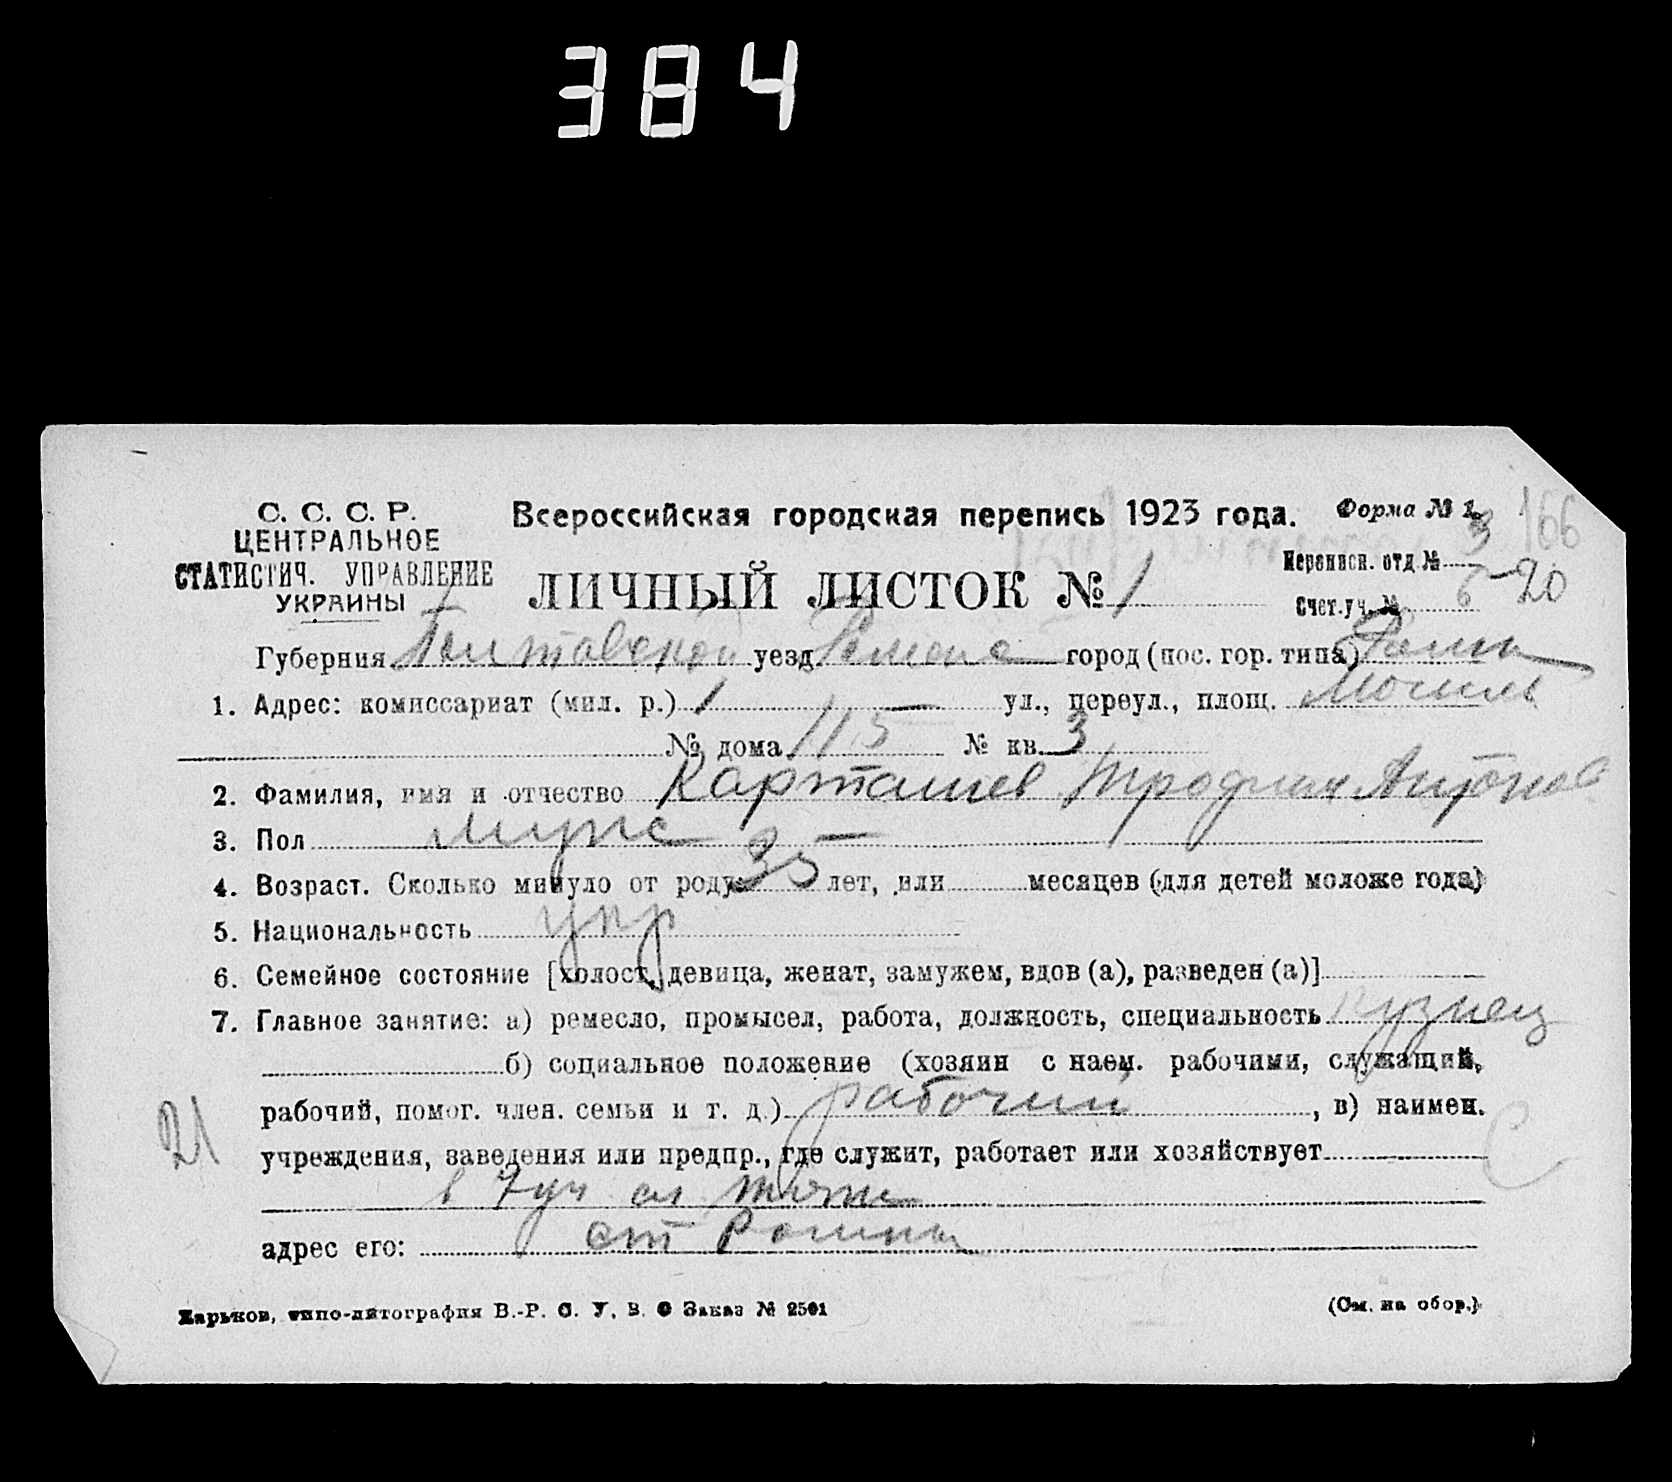 384
С. С. С. Р.
ЦЕНТРАЛЬНОЕ
СТАТИСТИЧ. УПРАВЛЕНИЕ
УКРАИНЫ
Всероссийская городская перепись 1923 года.
Форма № 1.
166
ЛИЧНЫЙ ЛИСТОК № 1
Переписн. отд. № 3
Счет. уч. № 6-20
Губерния Полтавской уезд город (пос. гор. типа) Ромны
1. Адрес: комиссариат (мил. р.) 1 — ул., переул., площ.
№ дома 115 № кв. 3
2. Фамилия, имя и отчество Карташев Трофим Антонов
3. Пол мужс —
4. Возраст. Сколько минуло от роду 35 лет, или месяцев (для детей моложе года)
5. Национальность укр
6. Семейное состояние [холост, девица, женат, замужем, вдов (а), разведен (а)]
7. Главное занятие: а) ремесло, промысел, работа, должность, специальность кузнец
б) социальное положение (хозяин с наем. рабочими, служащий,
рабочий, помог. член. семьи и т. д.) рабочий , в) наимен.
21
учреждения, заведения или предпр., где служит, работает или хозяйствует
в 7 уч сл тяги
адрес его: ст Ромны
Харьков, типо-литография В.-Р. С. У. В. О Заказ № 2501
(См. на обор.)